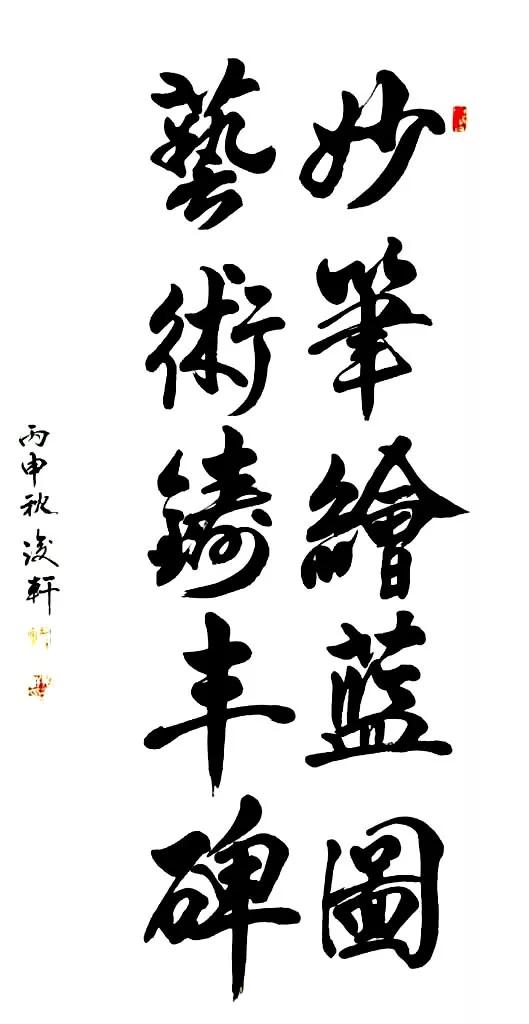 妙筆繪藍圖
藝術鑄丰碑
丙申秋浚軒